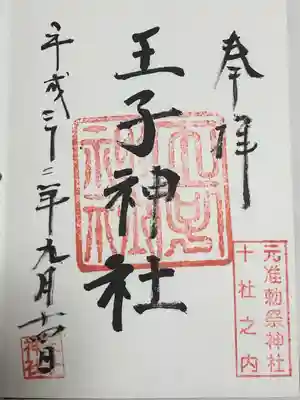 奉拝
元准勅祭神社
十社之内
王子神社
王子神社
平成二十二年九月十四日